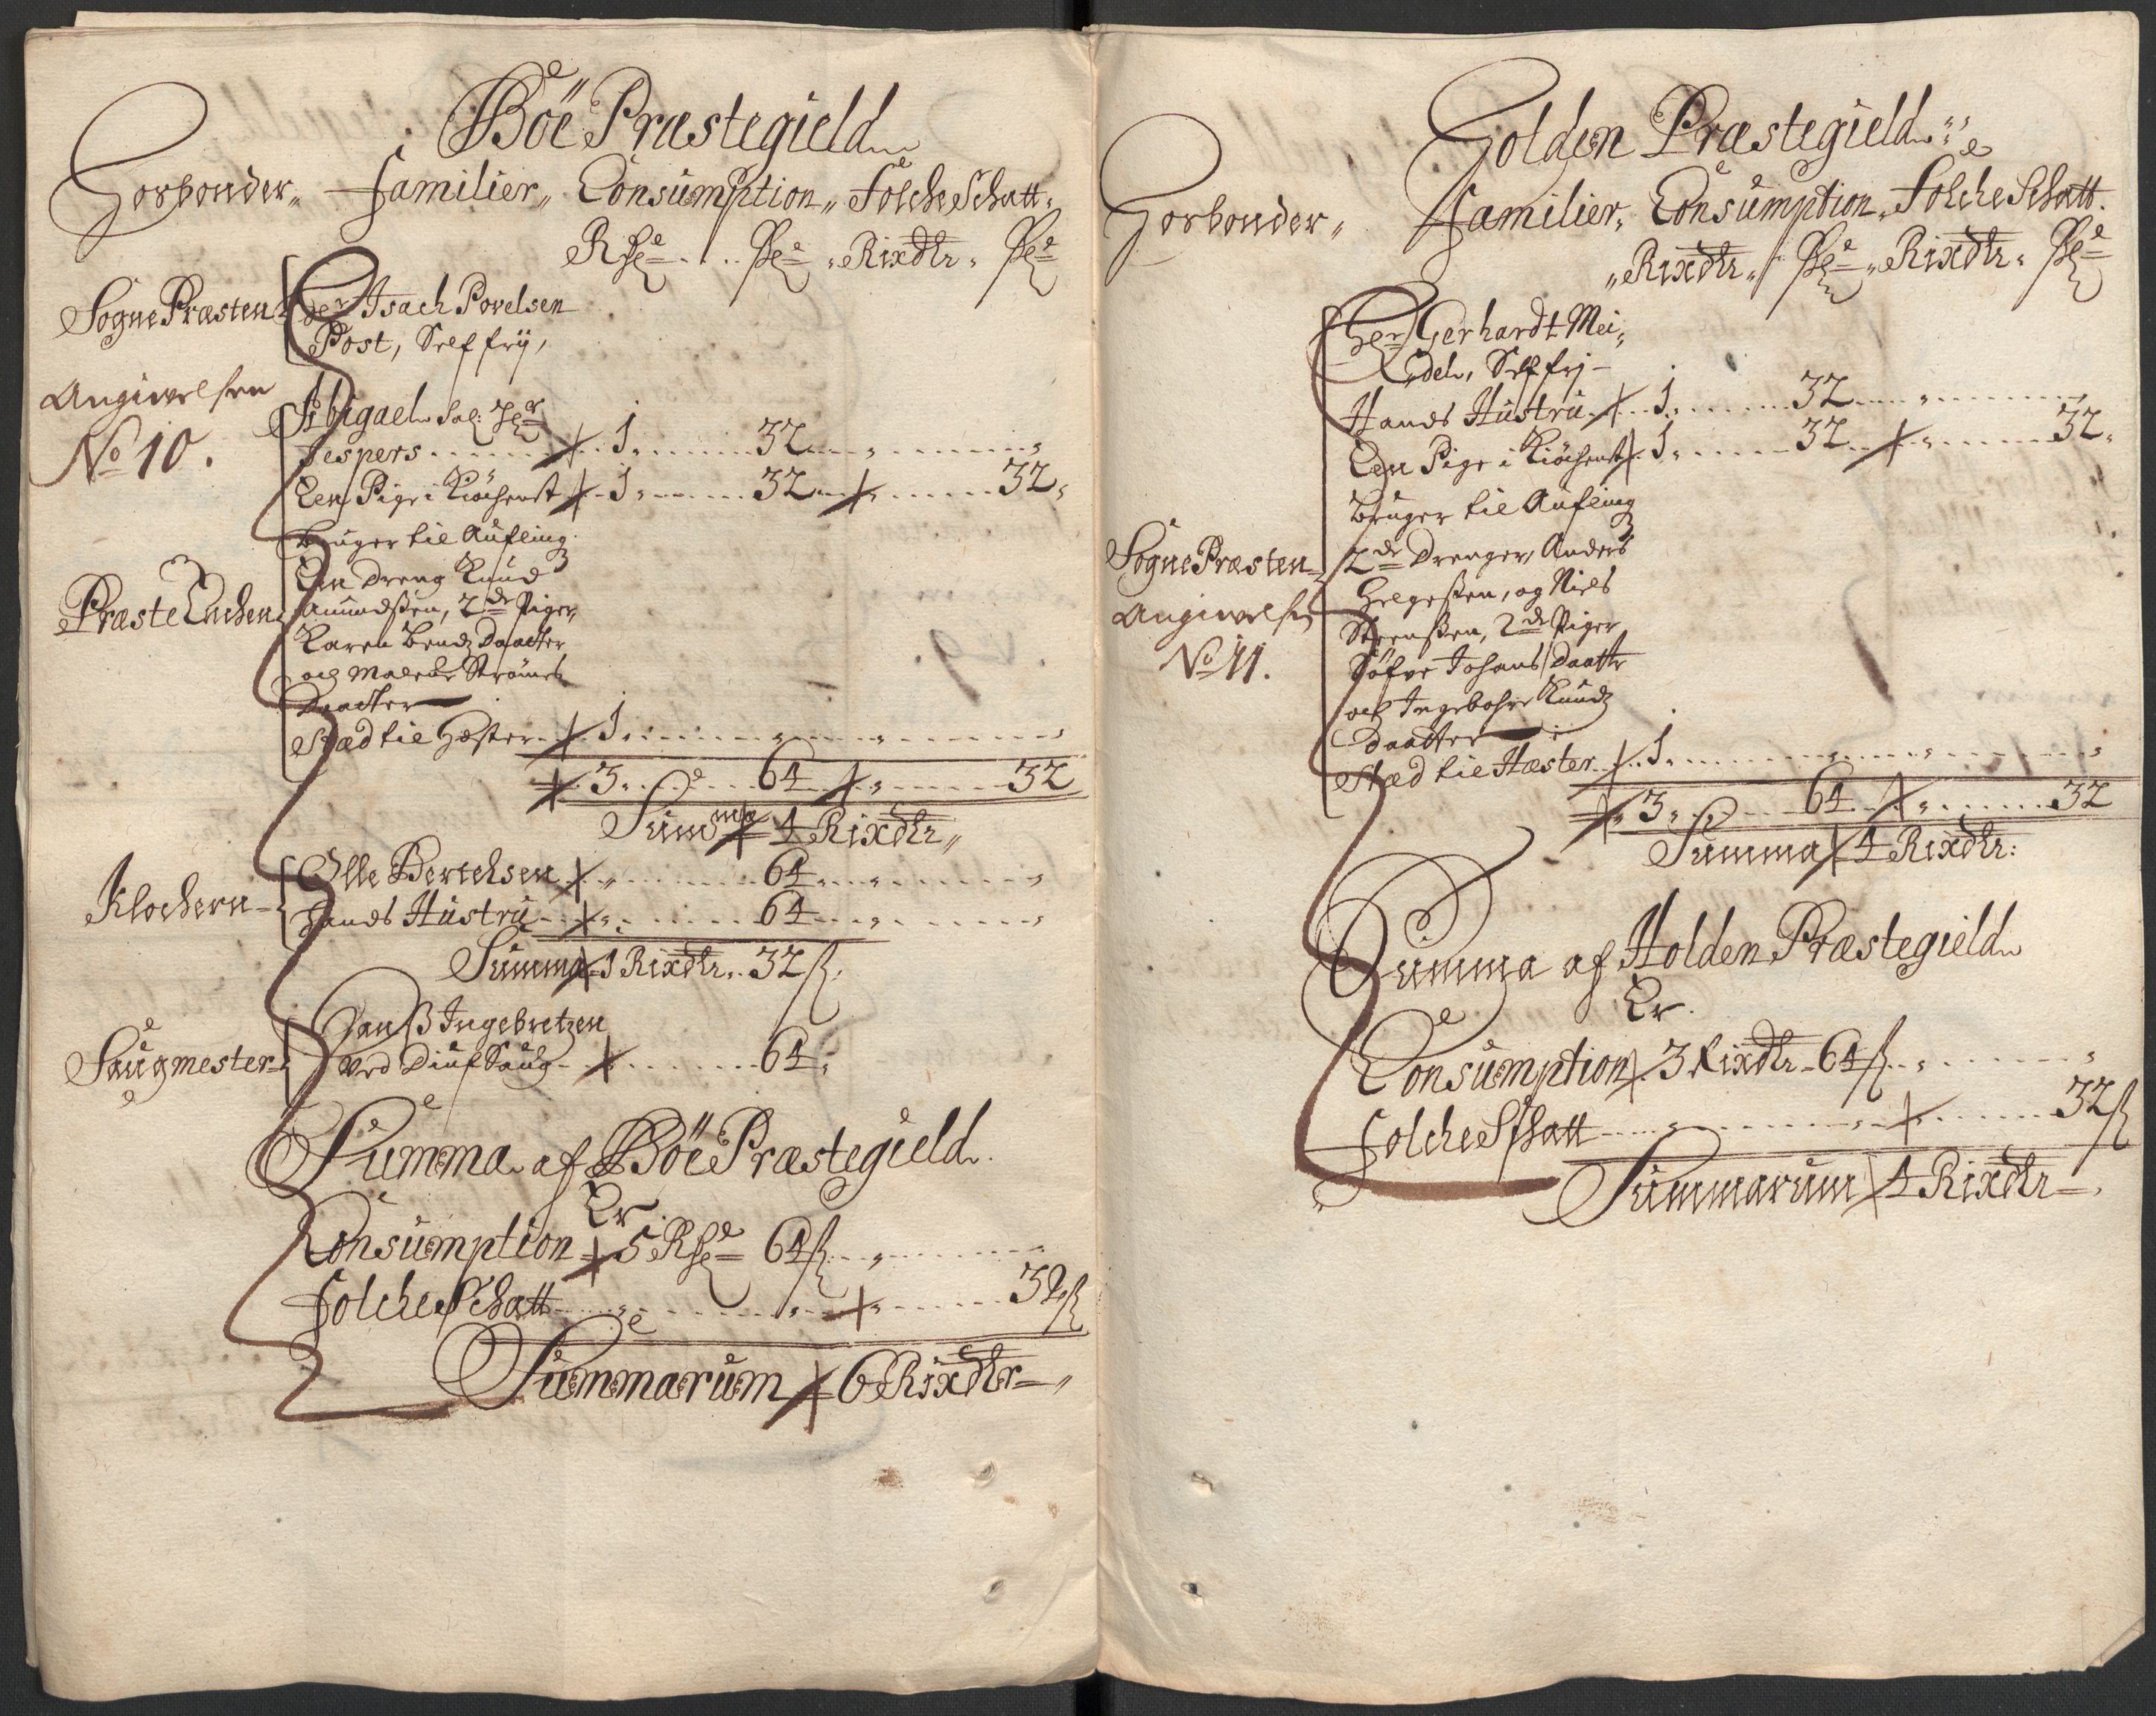 Böe Præstegield
Horbonder, Familier, Consumption, Folche Schatt,
Rixdlr, Rixdlr,
Sogne Præsten Her Isach Povelsen
Post, Self frij,
Angivelsen
No 10.
Abigael Sal: Her
Jespers 1 32
Een Pige i Kiöchenet 1 32 32
Bruger til Aufling
Præste Enchen
Een Dreng Knud
Amundßen, 2de Piger,
Karen Bendz Daatter
og Maren Strömes
Daatter
Stæd til Hæster 1
3 64 32
Summa 4 Rixdlr
Klochern Olle Bertelsen 64
Hands Hustru 64
Summa 1 Rixdlr 32 ß
Saugmester Hanß Ingebretzen
ved Saug 64
Summa af Böe Præstegield
Er
Consumption 5 64 ß
Folche Schatt 32 ß
Summarum 6 Rixdlr
Holden Præstegield
Horbonder, Familier, Consumption, Folche Schatt.
Rixdlr, Rixdlr,
Her Gerhardt Mei-
del, Self frj
Hands Hustru 1 32
Een Pige i Kiöchenet 1 32 32
Bruger til Aufling
Sogne Præsten 2de Drenger, Anders
Helgeßen, og Niels
Angivelsen
Steenßen, 2de Piger
No 11.
Söfve Johans Daatter
och Ingebohr Knudz
Daatter
Stæd til Hæster 1
3 64 32
Summa 4 Rixdlr:
Summa af Holden Præstegield
Er.
Consumption 3 Rixdlr 64 ß
Folche Schatt 32 ß
Summarum 4 Rixdlr